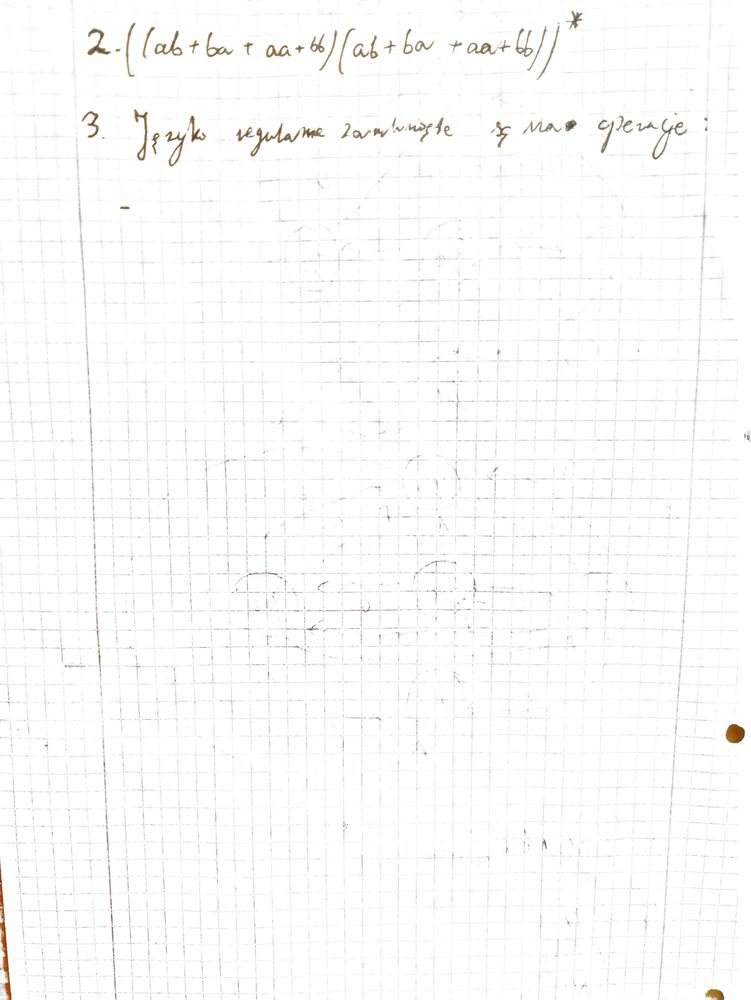 2. ((ab + ba + aa + bb)(ab + ba + aa + bb))*
3. Języki regularne zamknięte są na operacje:
-